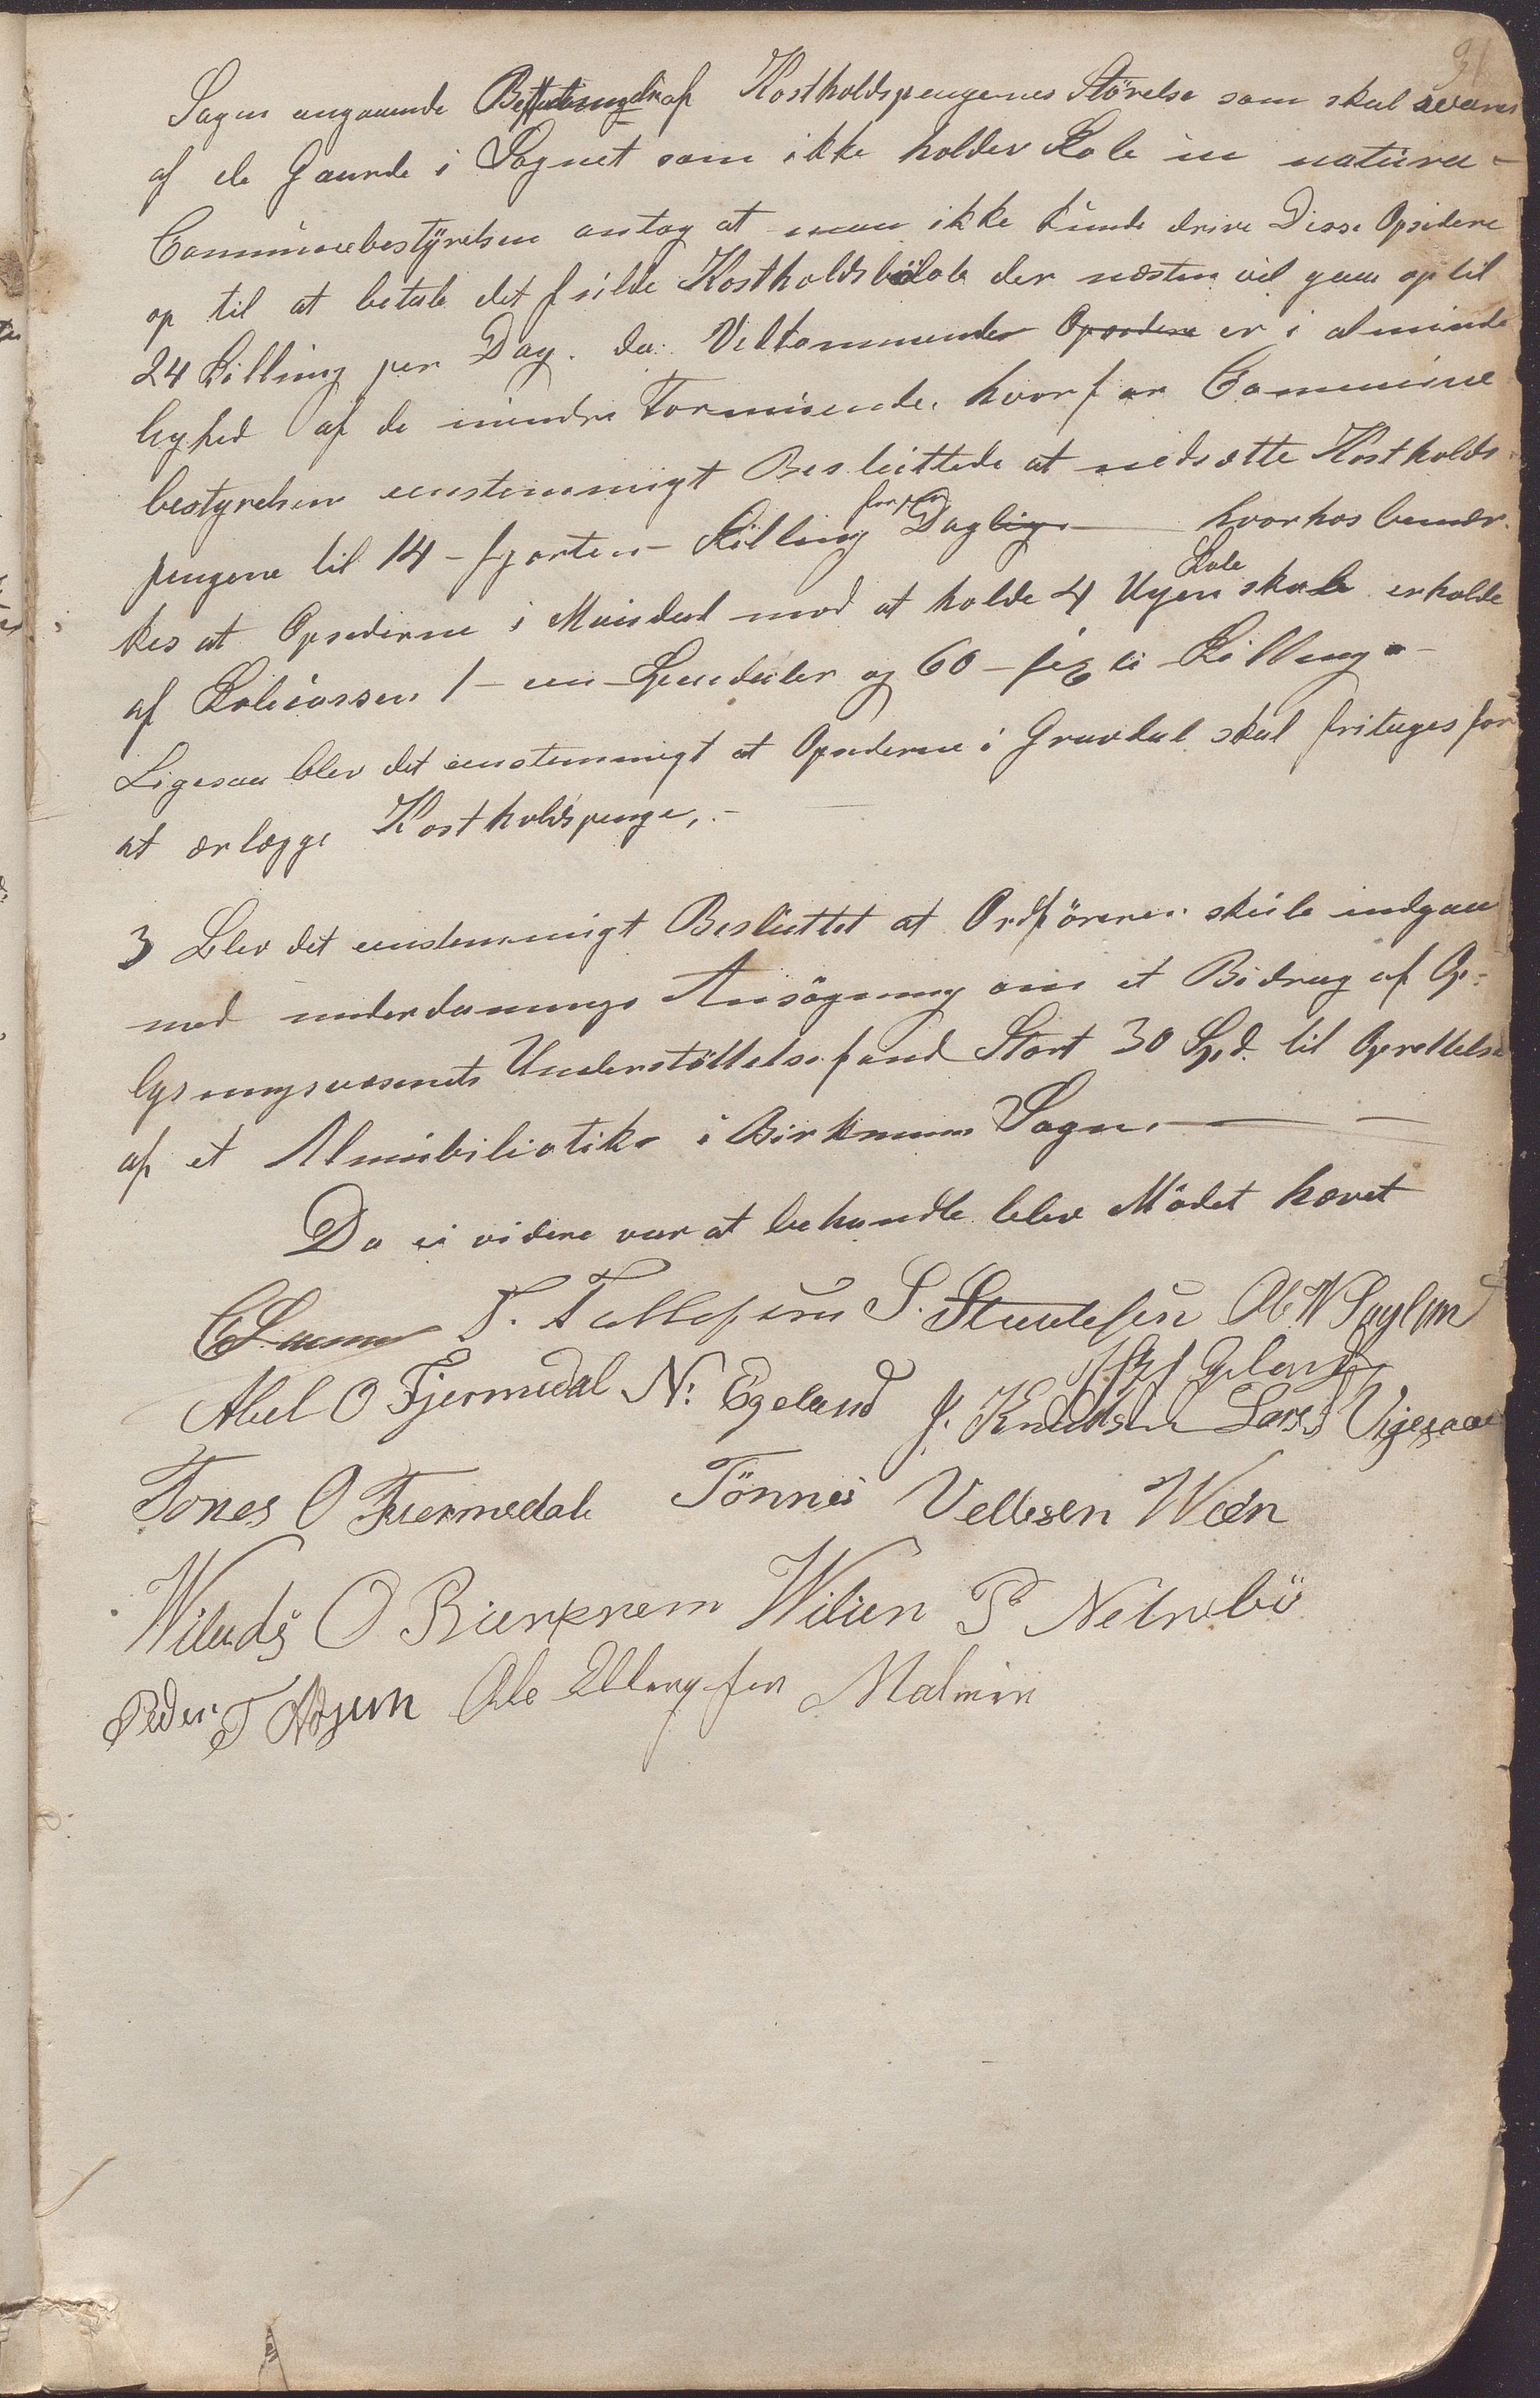 31
Sagen angaaende af Kostholdspengenes Störelse som skal svares
af de Gaarde i Sognet som ikke holder Skole in natura -
Communebestyrelsen antog at man ikke kunde drive Disse Opsidere
op til at betale det fulde Kostholdsbelöb der næsten vil gaa op til
24 Skilling per Dag. da Vedkommende Opsidere er i alminde
lighed af de mindre Formuende, hvorfor Commune
bestyrelsen eenstemmigt Besluttede at nedsætte Kostholds
pengene til 14 - fjorten - Skilling for hver Daglig hvorhos bemær-
kes at Opsiderne i Mavsdal mod at holde 4 Ugers Skole skole erholde
af Skolecassen 1 - en - Speciedaler og 60 - sexti - Skilling -
Ligesaa blev det eenstemmigt at Opsiderne i Gravdal skal fritages for
at erlægge Kostholdspenge, -
3 Blev det eenstemmigt Besluttet at Ordföreren skule indgaa
med underdannings Ansögning om et Bidrag af Op-
lysningsvæsenets Understöttelsefond Stort 30 Spd. til Oprettelse
af et Almubibliotik i Birkrems Sogn.
Da ei videre var at behandle blev Mödet hævet
T. Tollefsen S. Ole N
Abel O Fjermedal N: Egeland J. Knudsen Lars Vigesaae
Tones O Fuermedal Tönnes Vellesen Wæn
Wilads O Bierkrem Wilien P Netrebö
Peder T Ole Ellingsen Malmin